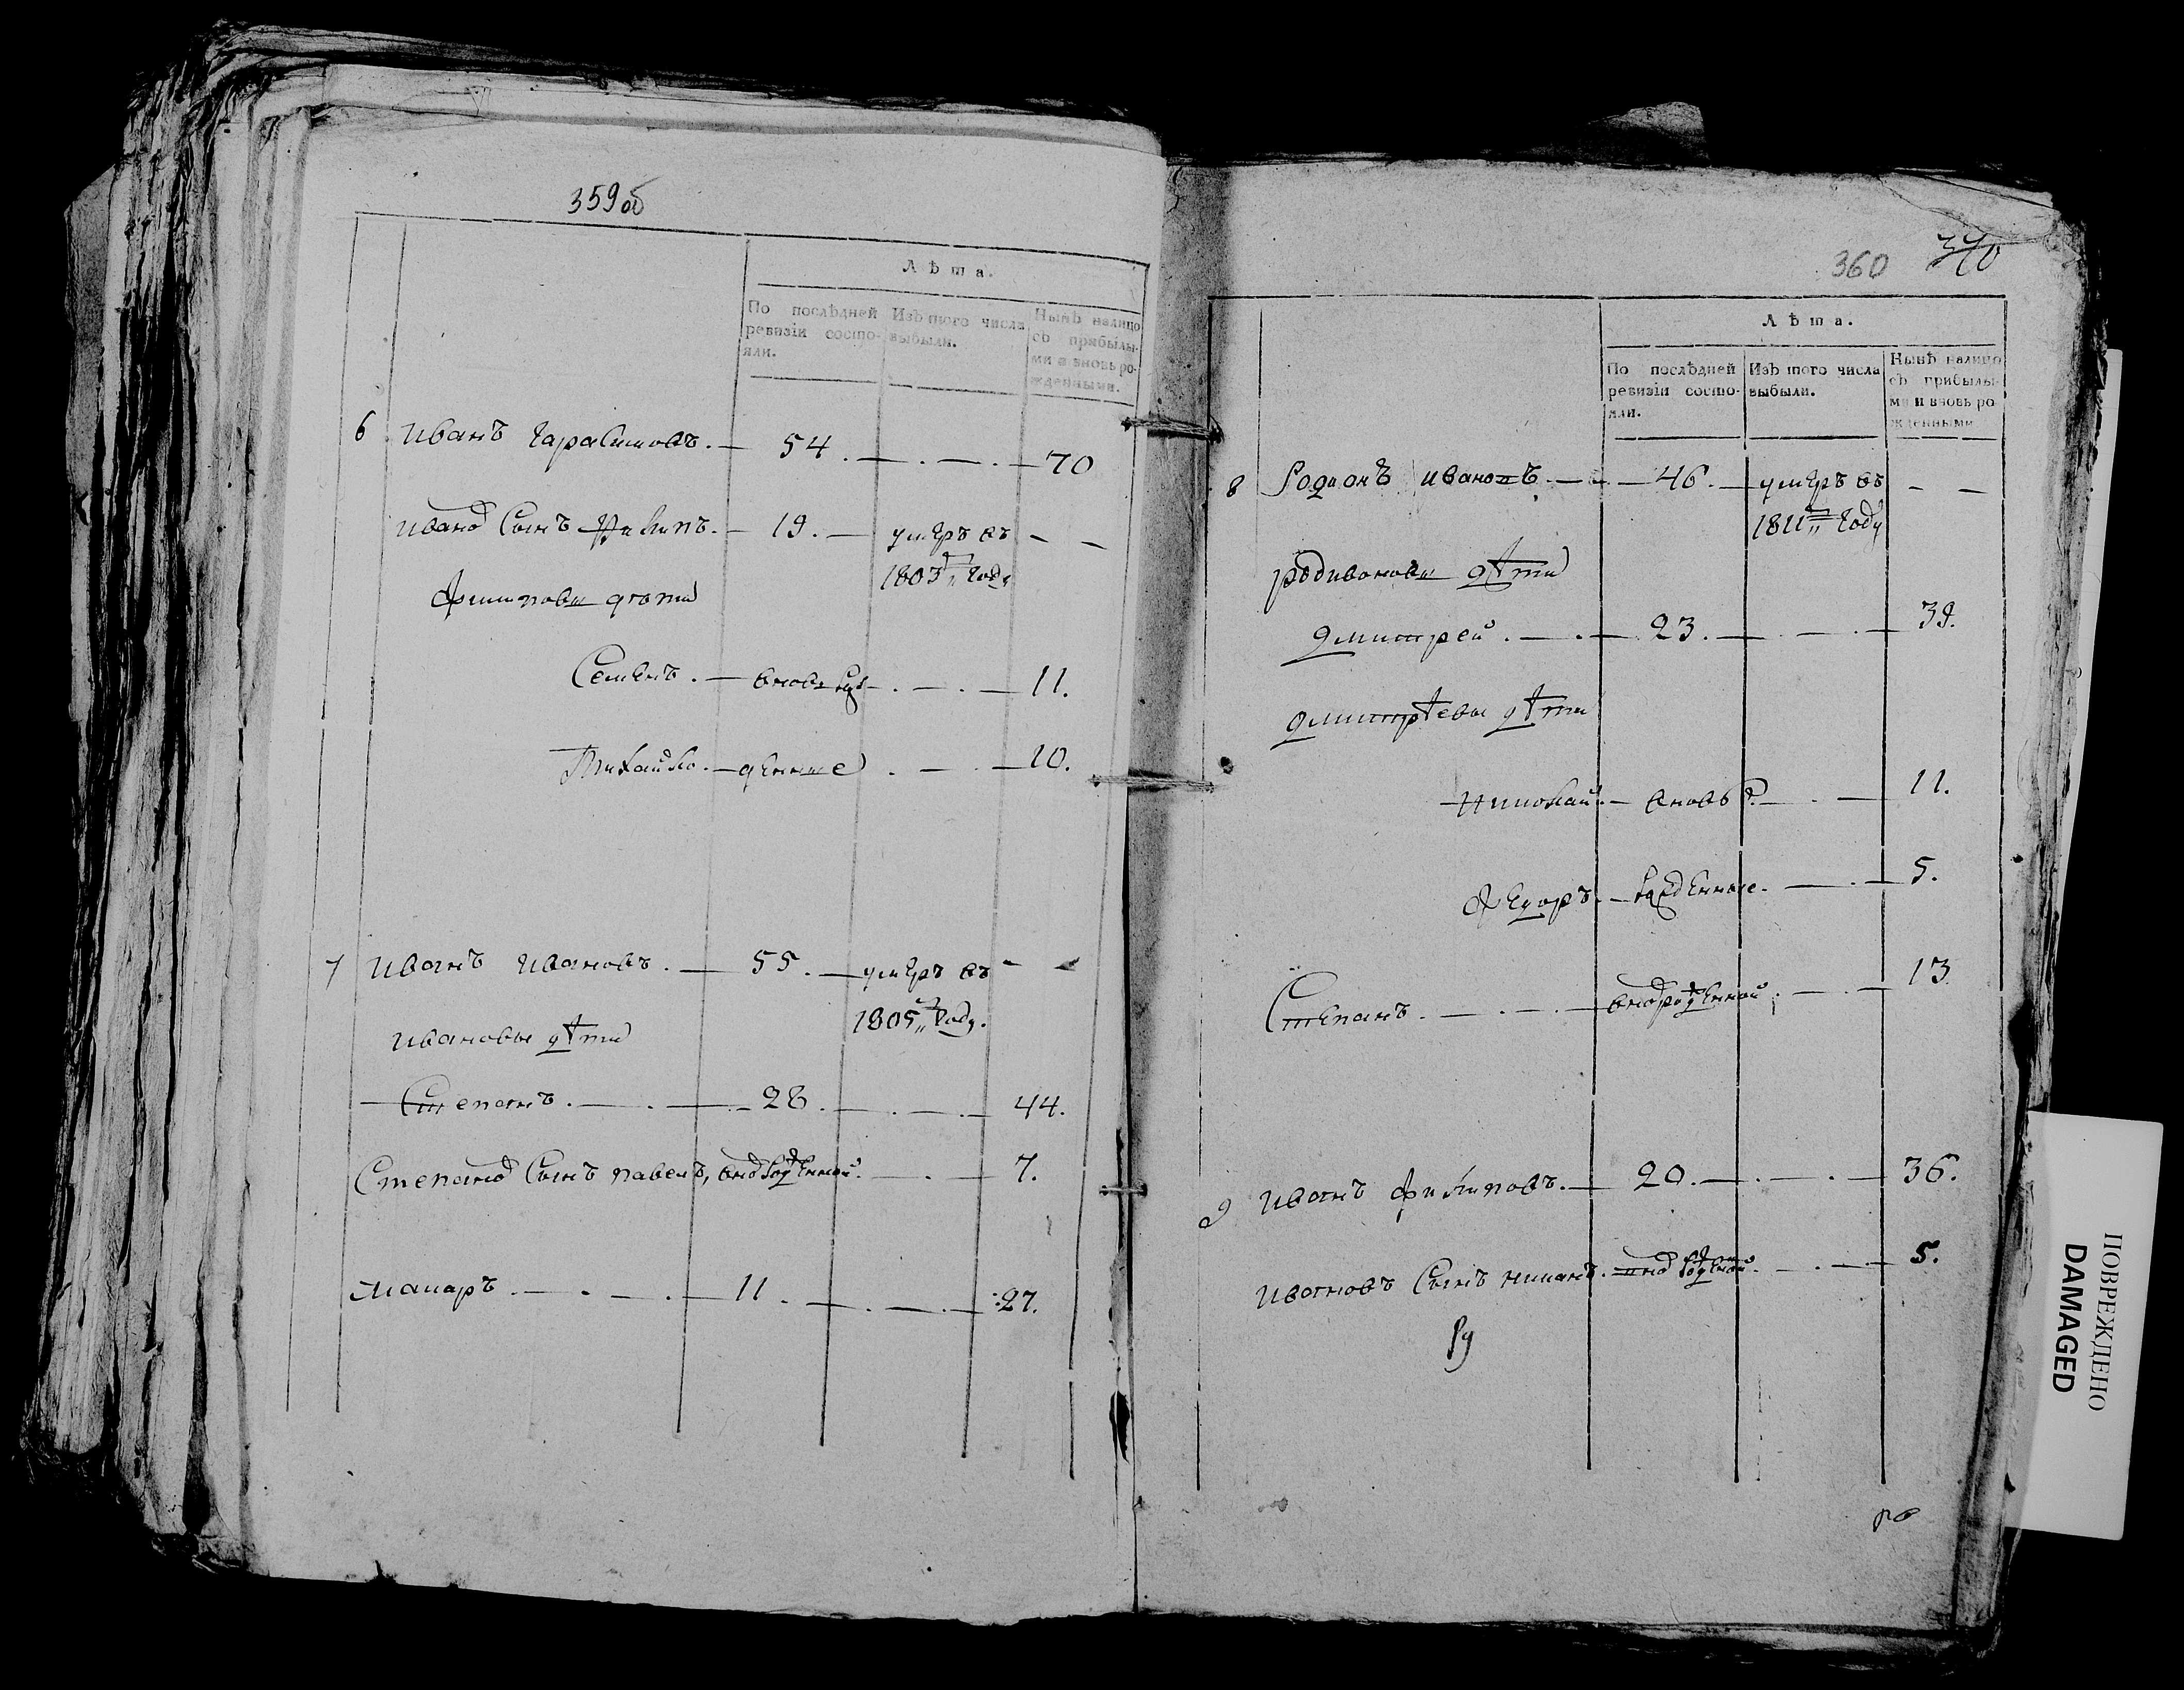 359об
Лѣта.
По послѣдней ревизіи состояли.
Изъ того числа выбыли.
Нынѣ налицо съ прибылыми и вновь рожденными.
6 Иванъ Гарасимовъ. — 54. — . — . — 70
Иванов Сынъ Филипъ. — 19. — умеръ въ — —
1803 году
Филиповы дѣти
Семенъ. — вновь рож — . — . — 11.
Михайло. — денные . — . — 10.
7 Иванъ Ивановъ. — 55. — умеръ въ — —
1805 году.
Ивановы дѣти
Степанъ. — . — 28. — . — . — 44.
Степанов Сынъ Павелъ, внов рожденной. — . — 7.
Макаръ. — . — . — 11. — . — . — 27.
360 370
Лѣта.
По послѣдней ревизіи состояли.
Изъ того числа выбыли.
Нынѣ налицо съ прибылыми и вновь рожденными
8 Родионъ Ивановъ. — — 46. — умеръ въ — —
1811 году
Родивоновы дѣти
Дмитрей. — . — 23. — . — . — 39.
Дмитрѣевы дѣти
Николай. — вновь — . — 11.
Федоръ. — рожденные. — . — 5.
Степанъ. — . — . — внов рожденной. — . — 13
9 Иванъ Филиповъ. — 20. — . — . — 36.
Ивановъ Сынъ — внов рожденой. — . — 5.
ПОВРЕЖДЕНО
DAMAGED